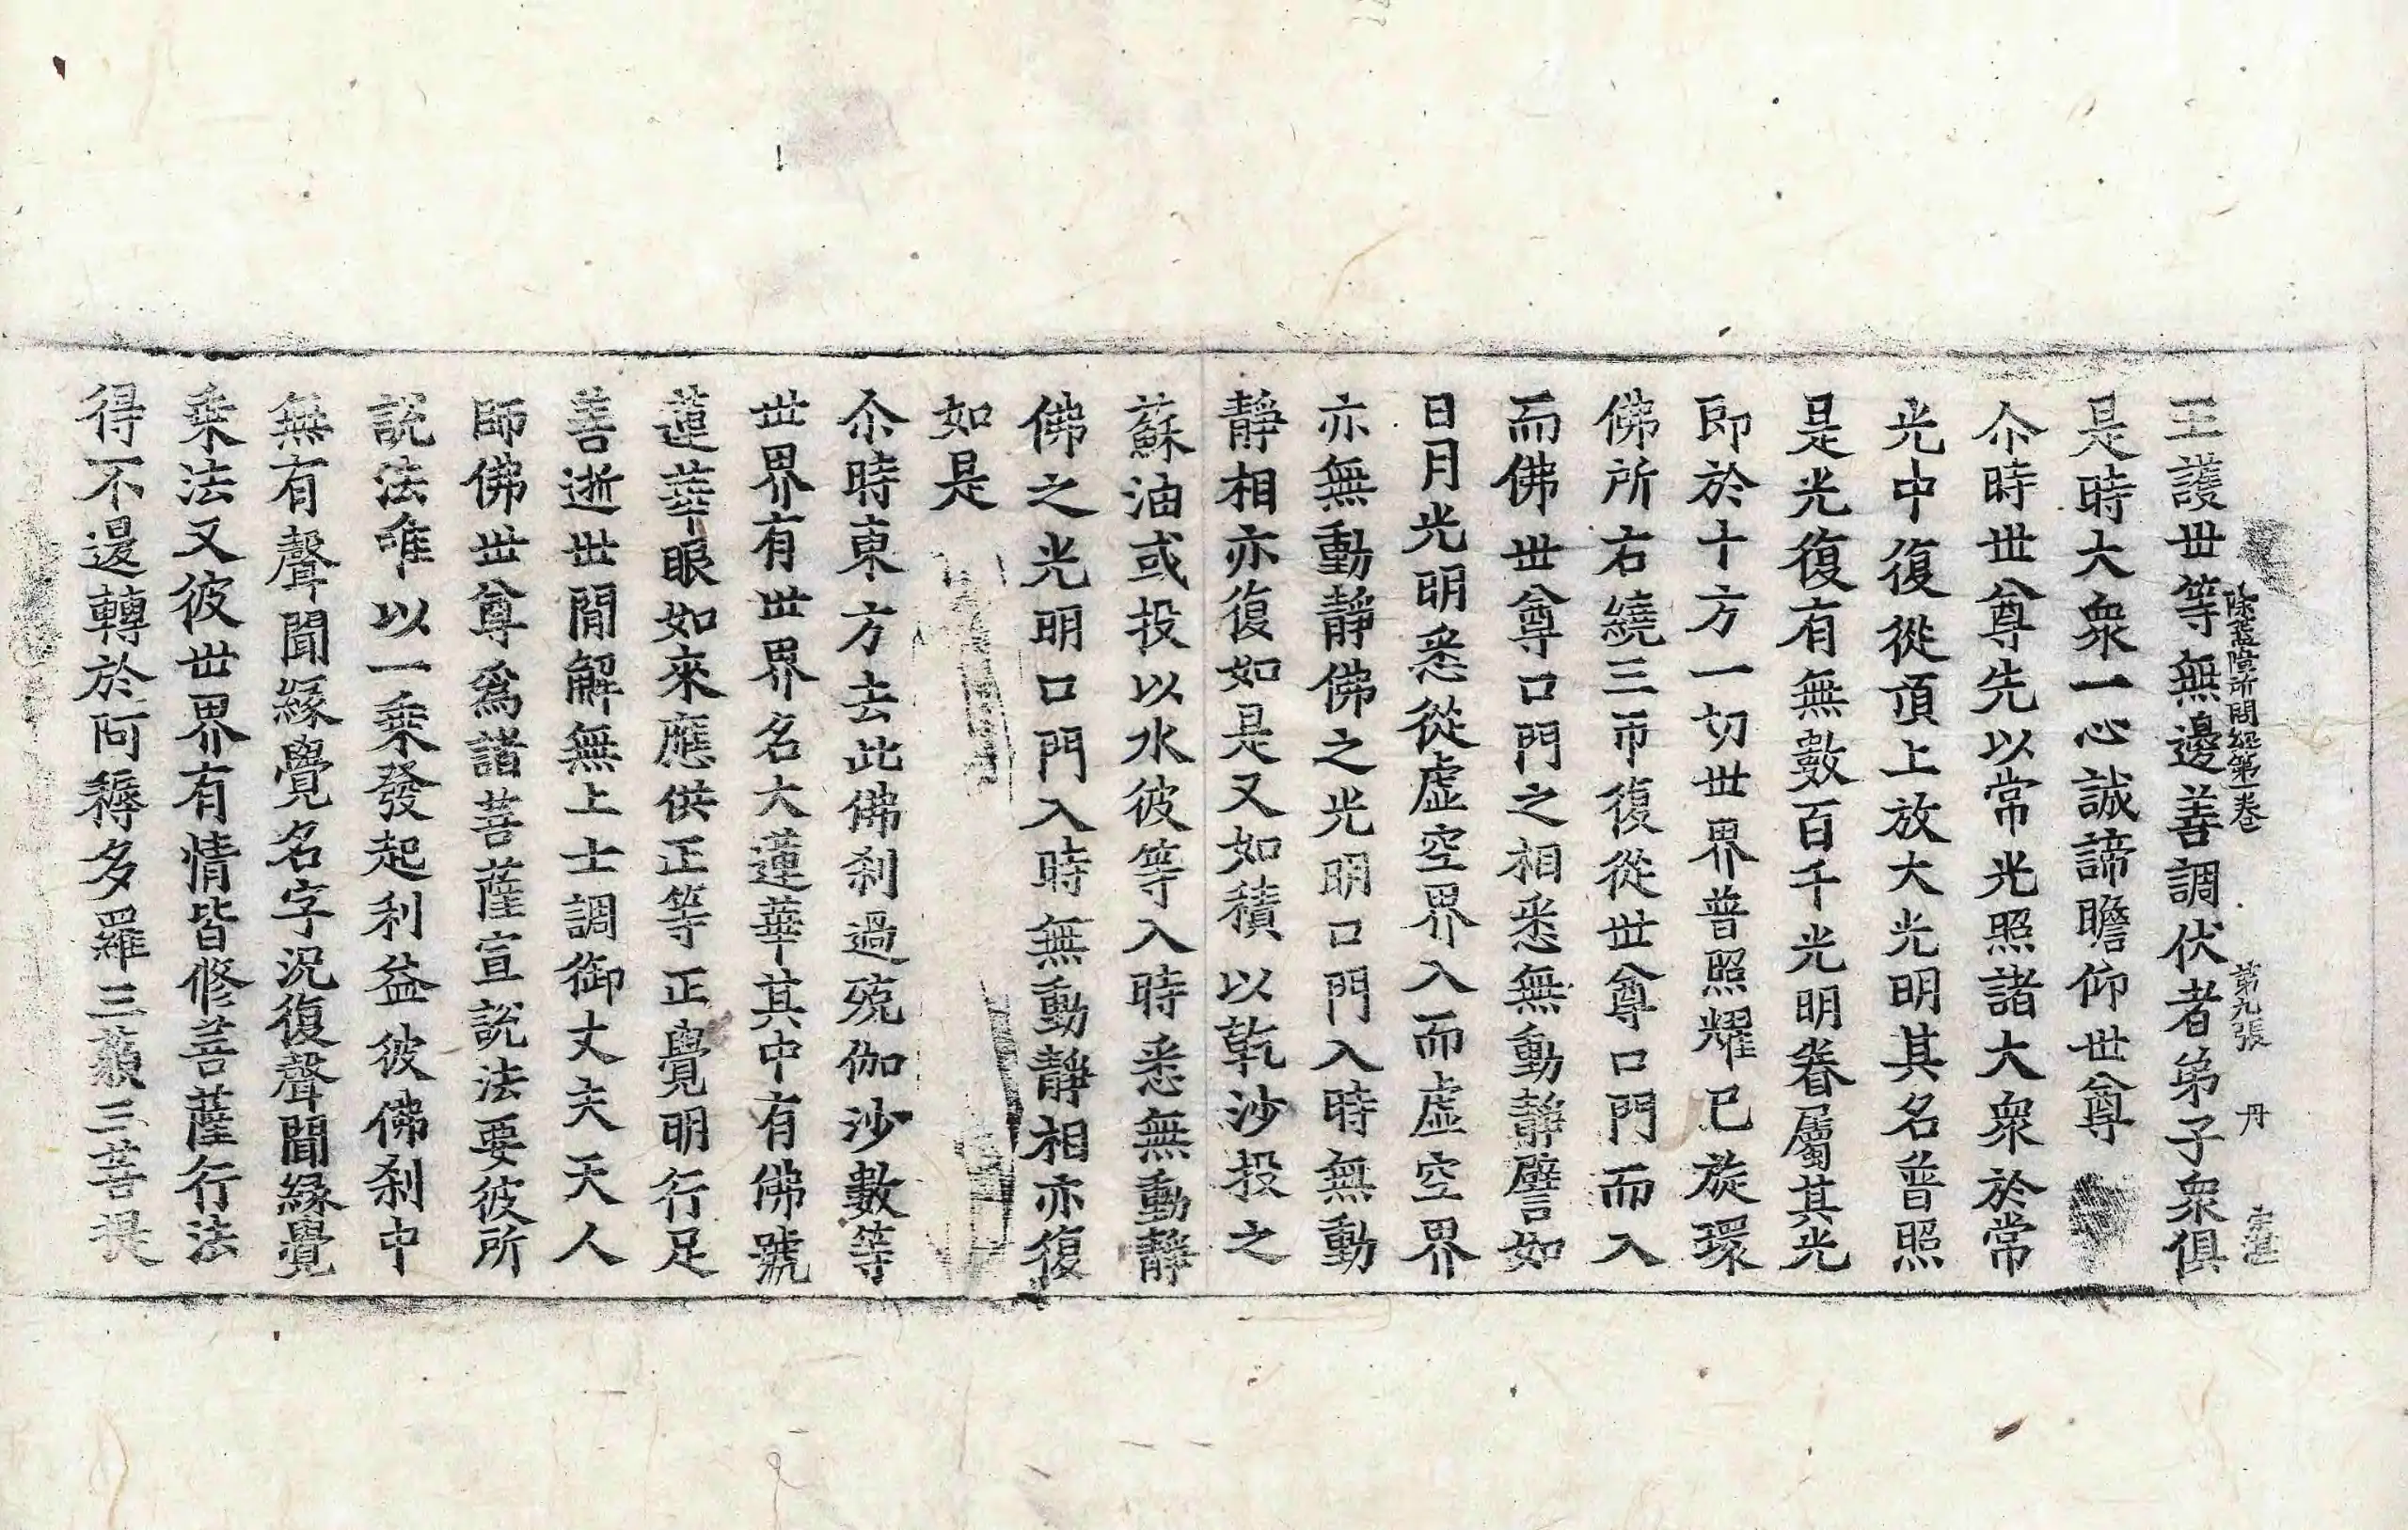 除蓋障所問経第一卷 第九張 丹
王護世等無邊善調伏者弟子衆俱
是時大衆一心誠諦瞻仰世尊
尒時世尊先以常光照諸大衆於常
光中復從頂上放大光明其名普照
是光復有無數百千光明眷屬其光
即於十方一切世界普照耀已旋環
佛所右繞三帀復從世尊口門而入
而佛世尊口門之相悉無動靜譬如
日月光明悉從虛空界入而虛空界
亦無動靜佛之光明口門入時無動
靜相亦復如是又如積以乾沙投之
蘇油或投以水彼等入時悉無動靜
佛之光明口門入時無動靜相亦復
如是
尒時東方去此佛刹過殑伽沙數等
世界有世界名大蓮華其中有佛號
蓮華眼如來應供正等正覺明行足
善逝世間解無上士調御丈夫天人
師佛世尊爲諸菩薩宣說法要彼所
說法唯以一乗發起利益彼佛刹中
無有聲聞緣覺名字況復聲聞緣覺
乗法又彼世界有情皆修菩薩行法
得不退轉於阿耨多羅三藐三菩提